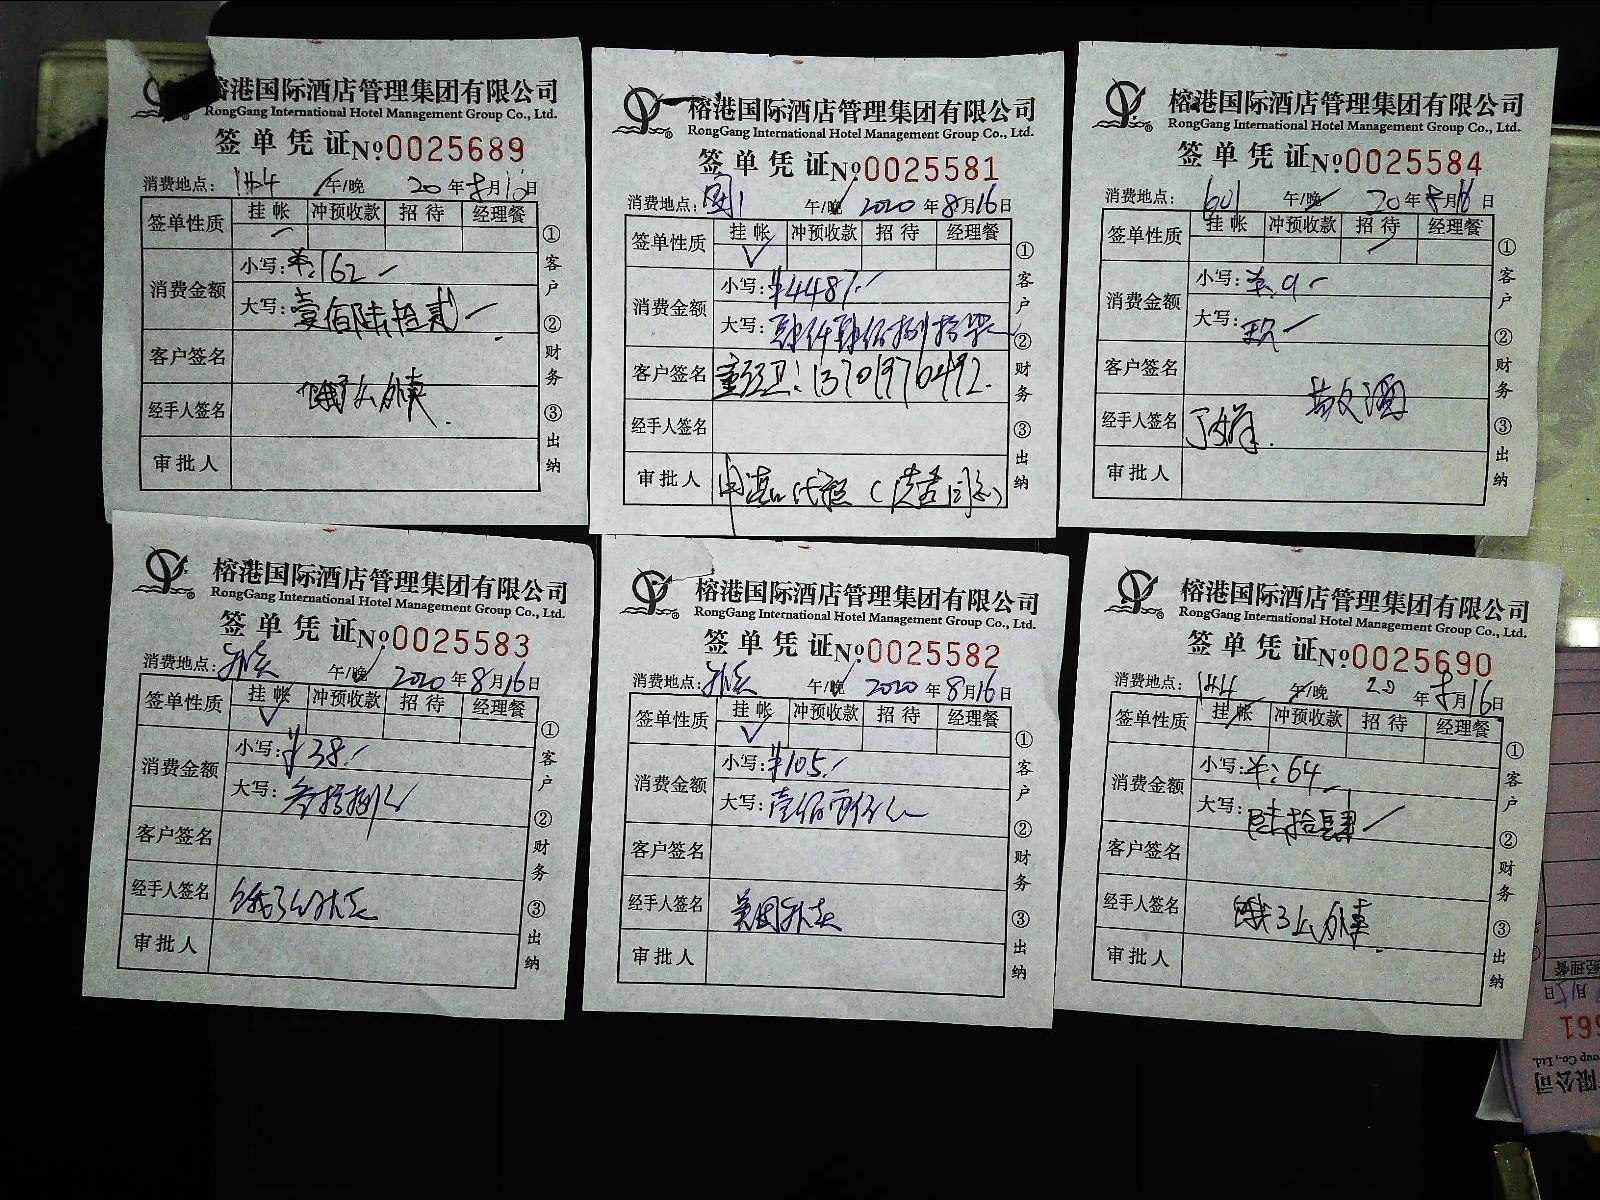 榕港国际酒店管理集团有限公司
RongGang International Hotel Management Group Co., Ltd.
签单凭证 №0025689
消费地点: 午/晚 20年8月16日
签单性质 挂帐 冲预收款 招待 经理餐
消费金额 小写: ¥:162
大写: 壹佰陆拾贰
客户签名
饿了么外卖
经手人签名
审批人
①客户 ②财务 ③出纳
榕港国际酒店管理集团有限公司
RongGang International Hotel Management Group Co., Ltd.
签单凭证 №0025581
消费地点: 午/晚 2020年8月16日
签单性质 挂帐 冲预收款 招待 经理餐
✓
消费金额 小写: ¥4487.-
大写: 肆仟肆佰捌拾柒
客户签名 13701976492.
经手人签名
审批人
①客户 ②财务 ③出纳
榕港国际酒店管理集团有限公司
RongGang International Hotel Management Group Co., Ltd.
签单凭证 №0025584
消费地点: 601 午/晚 20年8月16日
签单性质 挂帐 冲预收款 招待 经理餐
消费金额 小写: ¥:9-
大写: 玖
客户签名
敬酒
经手人签名
审批人
①客户 ②财务 ③出纳
榕港国际酒店管理集团有限公司
RongGang International Hotel Management Group Co., Ltd.
签单凭证 №0025583
消费地点: 外卖 午/晚 2020年8月16日
签单性质 挂帐 冲预收款 招待 经理餐
✓
消费金额 小写: ¥38.-
大写: 叁拾捌
客户签名
经手人签名 饿了么外卖
审批人
①客户 ②财务 ③出纳
榕港国际酒店管理集团有限公司
RongGang International Hotel Management Group Co., Ltd.
签单凭证 №0025582
消费地点: 外卖 午/晚 2020年8月16日
签单性质 挂帐 冲预收款 招待 经理餐
✓
消费金额 小写: ¥105.-
大写: 壹佰零伍
客户签名
经手人签名 美团外卖
审批人
①客户 ②财务 ③出纳
榕港国际酒店管理集团有限公司
RongGang International Hotel Management Group Co., Ltd.
签单凭证 №0025690
消费地点: 午/晚 20年8月16日
签单性质 挂帐 冲预收款 招待 经理餐
消费金额 小写: ¥:64
大写: 陆拾肆
客户签名
经手人签名 饿了么外卖
审批人
①客户 ②财务 ③出纳